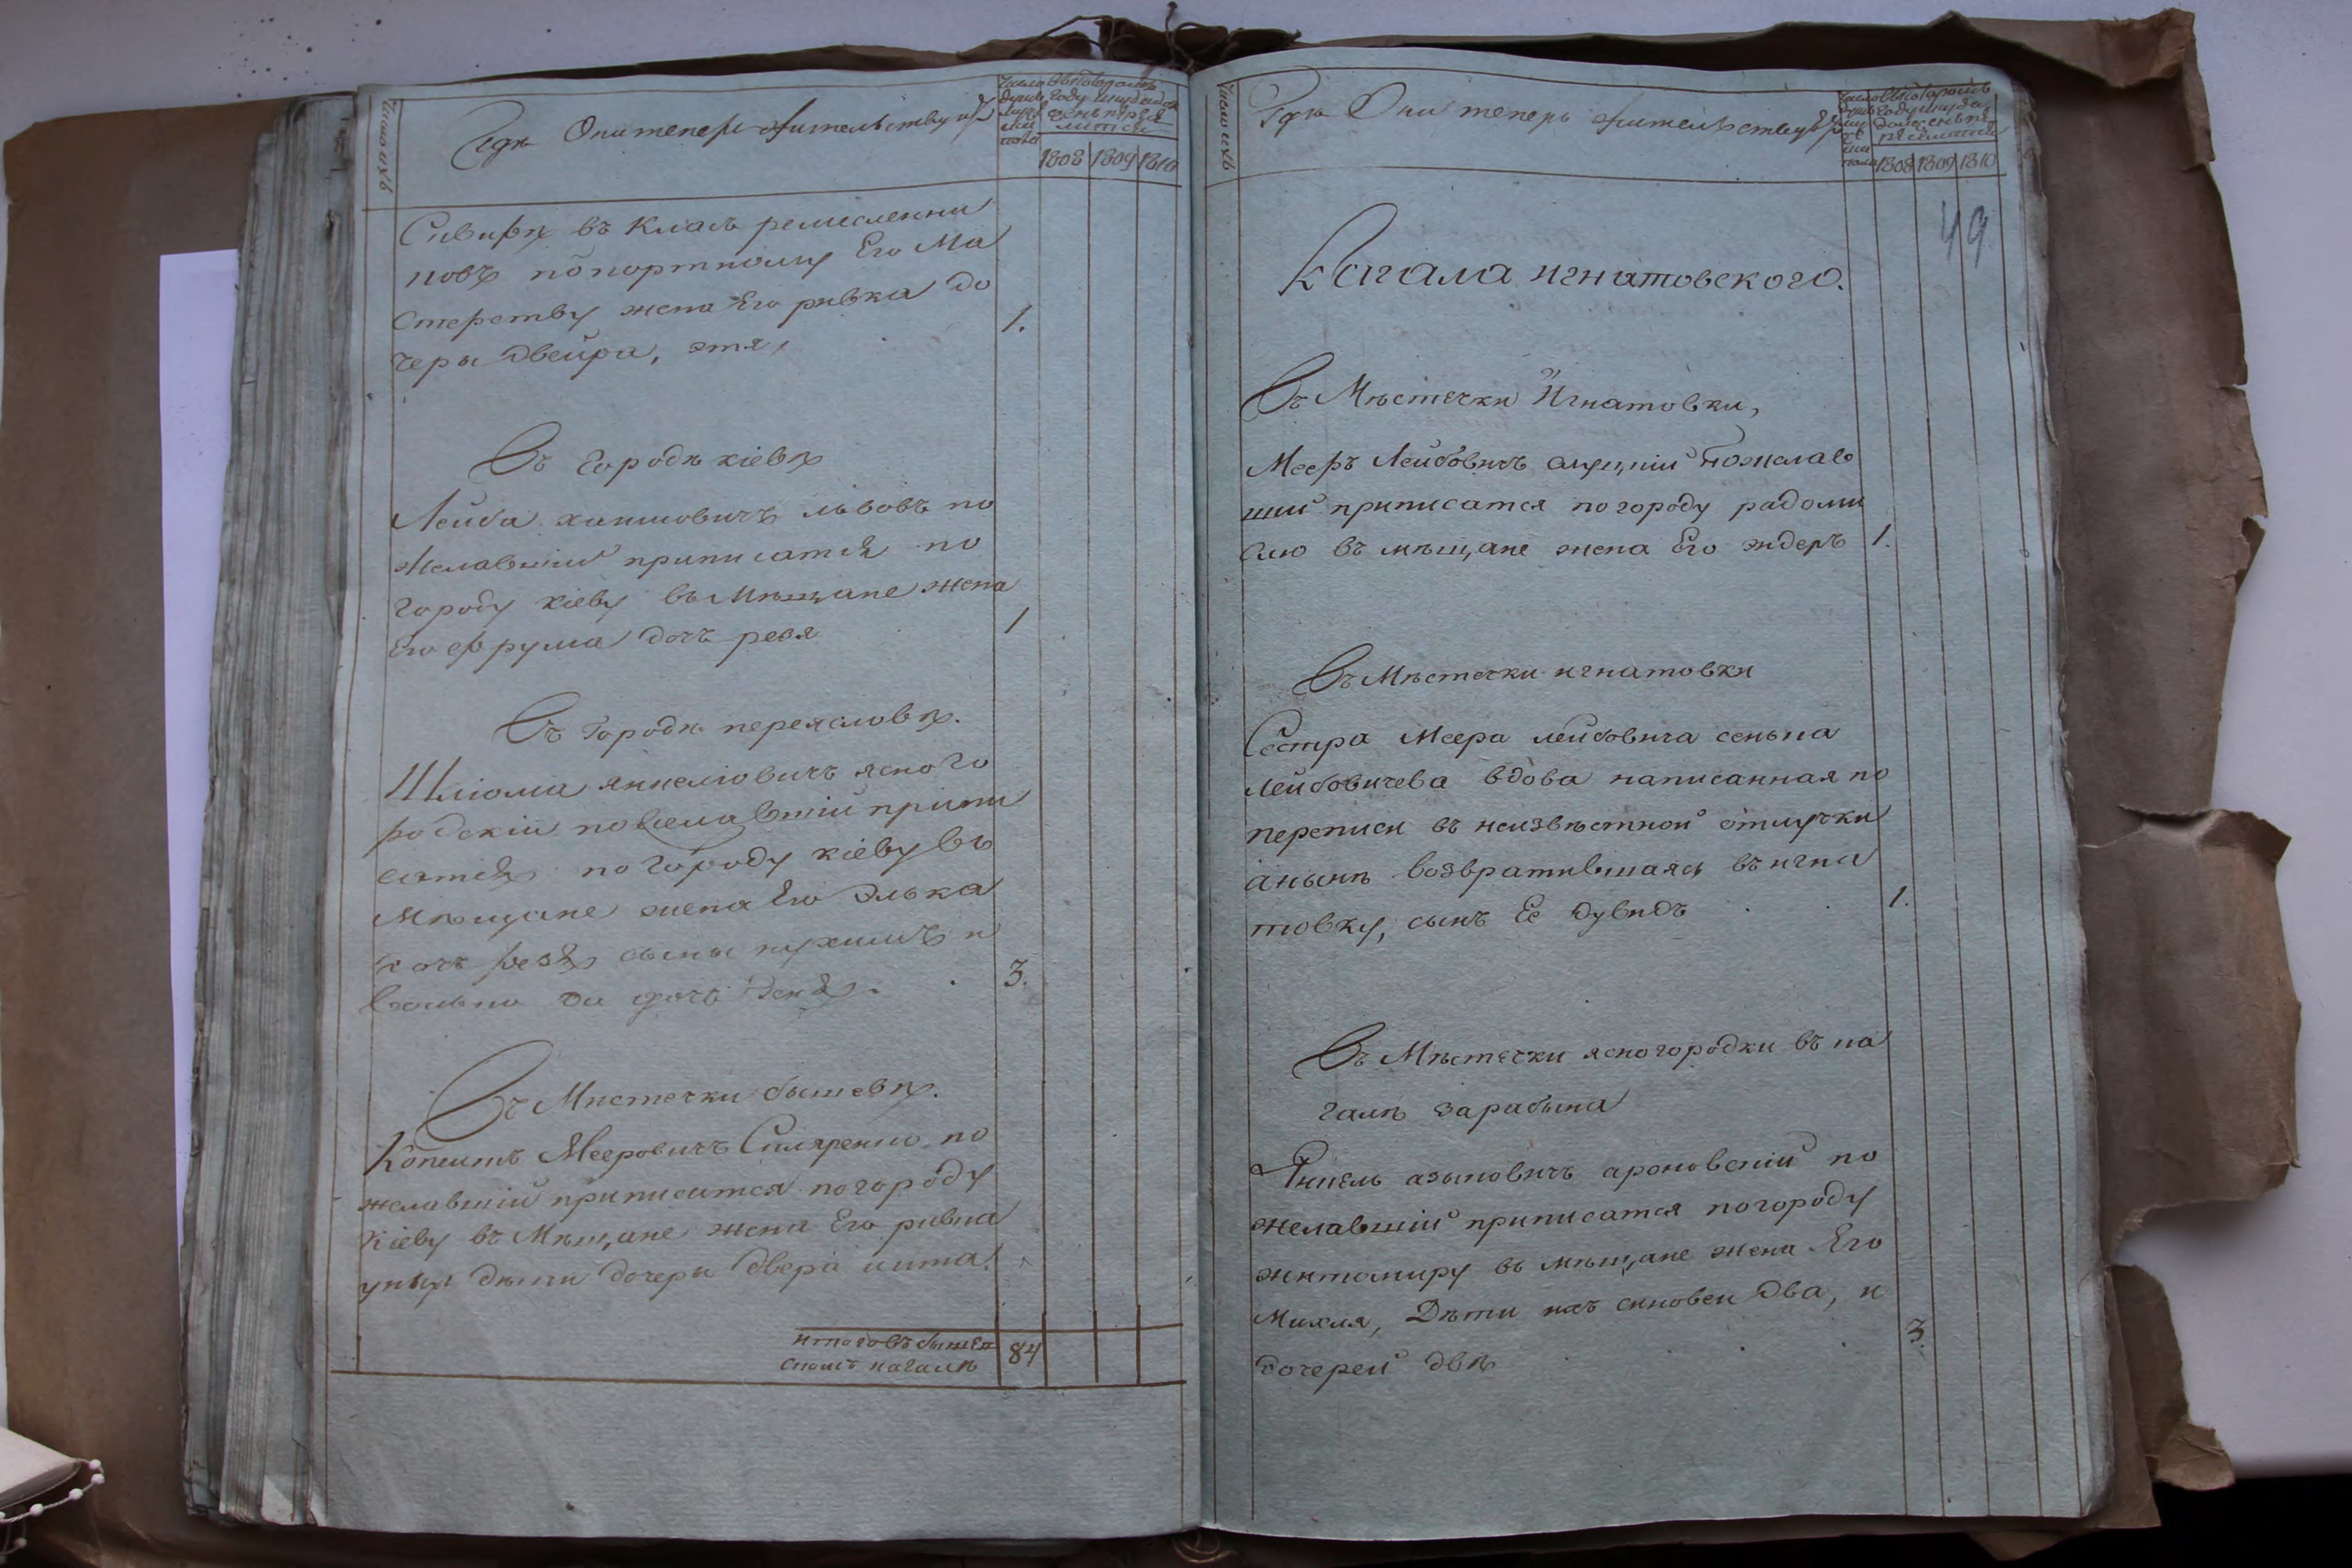 Число ихъ
Гдѣ Они теперь жительствуютъ
Число
душъ
муж
ска
пола
въ которомъ
году
1808 1809 1810
Сибирѣ въ Класъ ремесленни
ковъ попортному Его Ма
стерству жена Его ривка до
черы двейра, этя, 1.
Въ городѣ кіевѣ
Лейба хаимовичъ львовъ по
желавшій приписатся по
городу кіеву въ мѣщане жена
Его фрума дочъ рейзя 1
Въ городѣ переяславѣ.
Шліома янкеліовичъ ясного
родскій пожелавшій припи
сатся по городу кіеву въ
Мѣщане жена Его Элька
сыны и
да дочъ 3.
Въ Мистечки бышевѣ.
Копельтъ Мееровичъ Скляренко по
желавшій приписатся погороду
Кіеву въ Мѣщане жена Его ривка
дочеры двера
итого въ бышев
скомъ кагалѣ 84
Число ихъ
Гдѣ Они теперь жительствуютъ
Число
душъ
муж
ска
пола
въ которомъ
году
1808 1809 1810
49
Кагала игнатовского.
Въ Мѣстечки Игнатовки,
Мееръ Лейбовичъ пожелав
ший приписатся погороду радоми
слю въ мѣщане жена Его эндеръ 1.
Въ Мѣстечки игнатовки
Сестра Меера лейбовича сенька
лейбовичева вдова написанная по
переписи въ неизвѣстной отлучки
анынѣ возвратившаяся въ игна
товку, сынъ Ее дувидъ 1.
Въ Мѣстечки ясногородки въ ка
галѣ зарабына
азыковичъ ароновскій по
желавшій приписатся погороду
житомиру въ мѣщане жена Его
Михля, Дѣти ихъ сыновей два, и
дочерей двѣ 3.